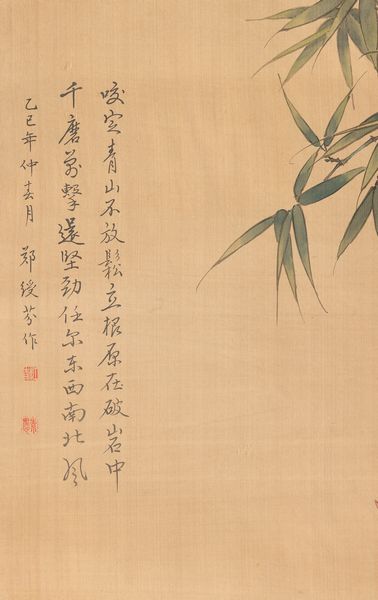 咬定青山不放鬆立根原在破岩中
千磨萬擊還坚劲任尔东西南北风
乙巳年仲春月 郑绶芬作